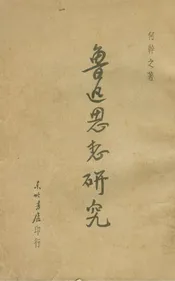 何幹之著
魯迅思想研究
东北書店
印行